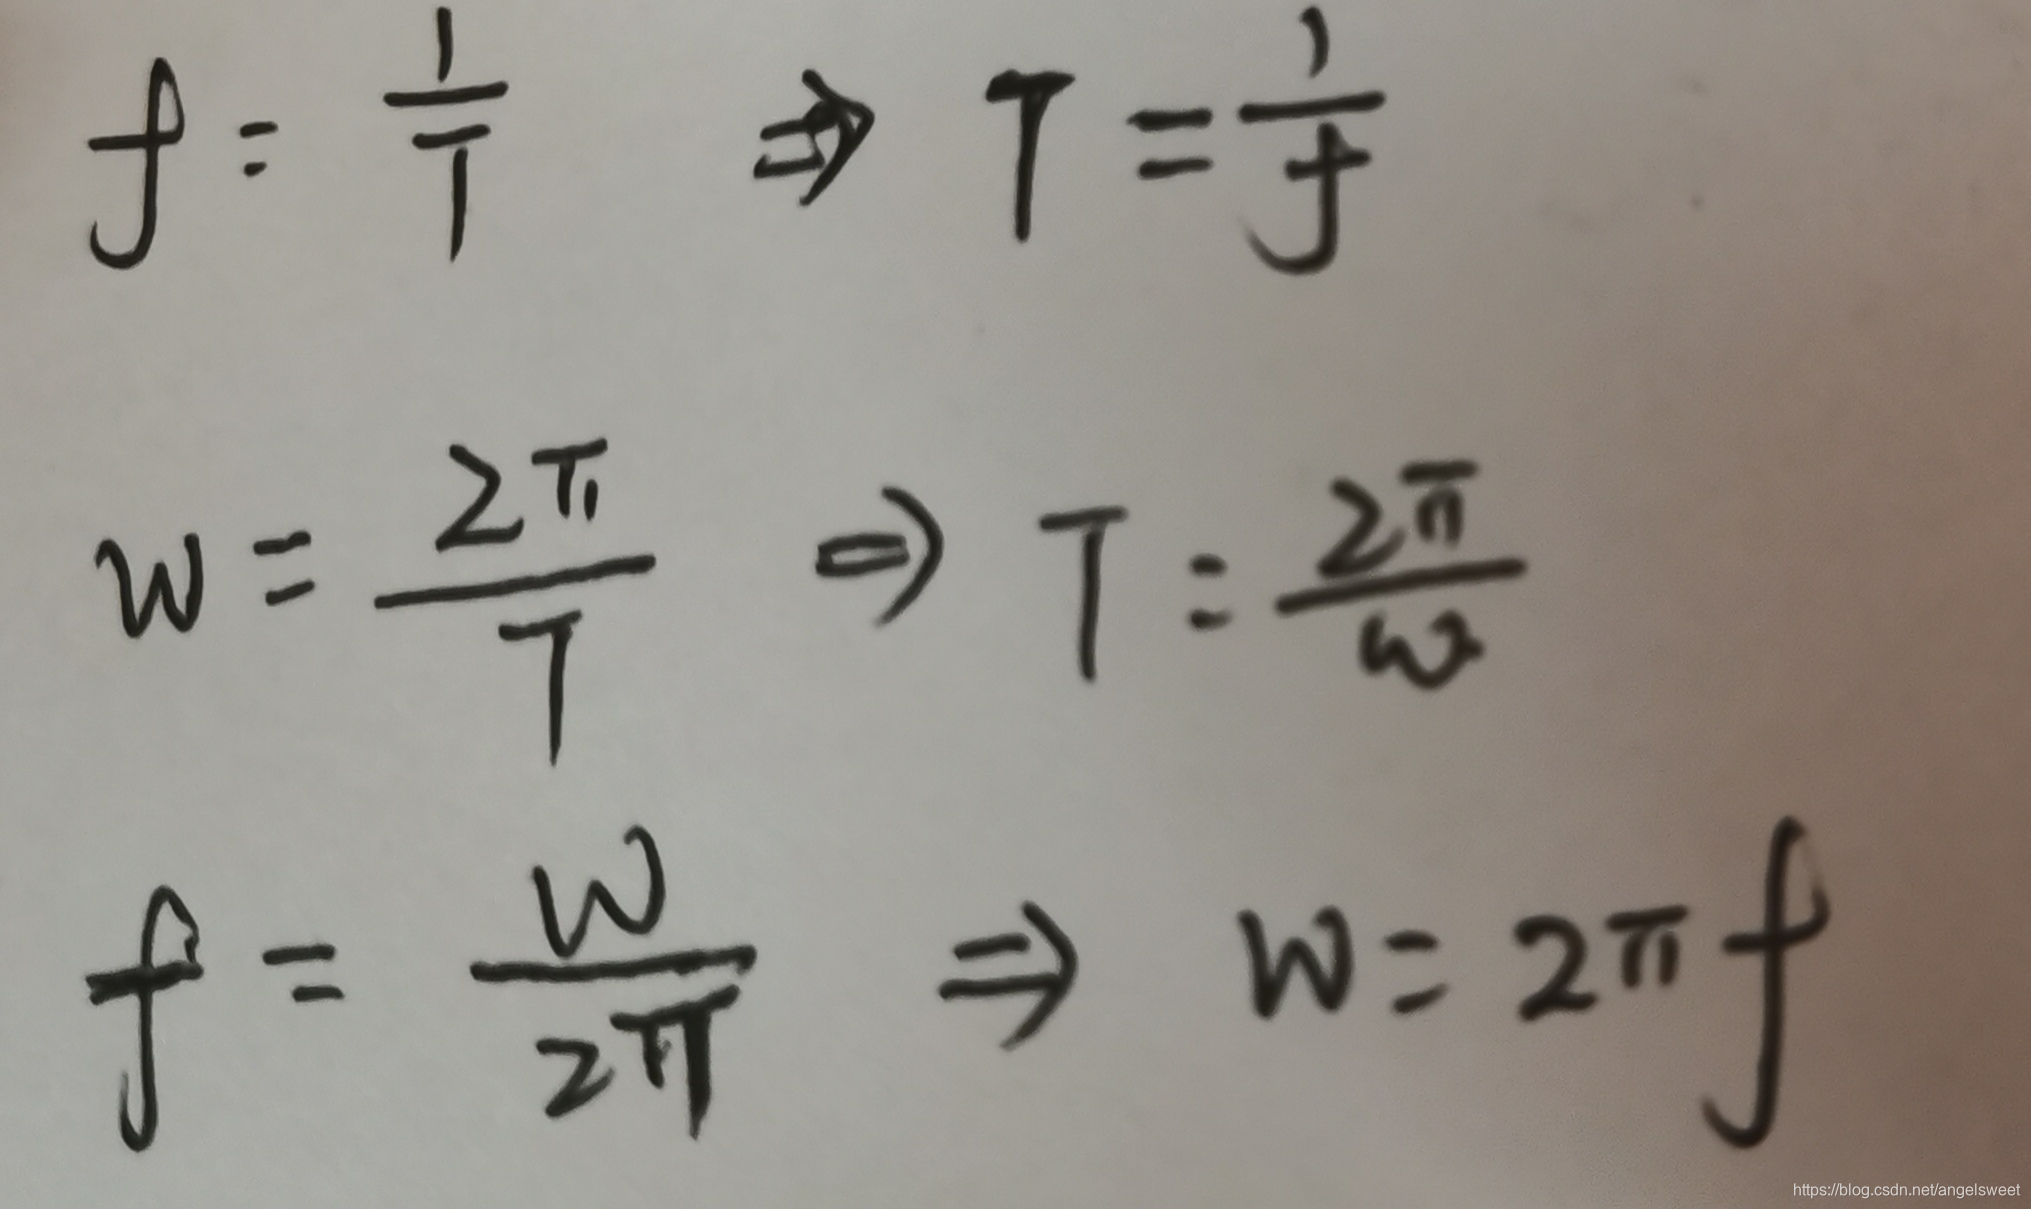 f = 1/T ⇒ T = 1/f
w = 2π/T ⇒ T = 2π/w
f = w/2π ⇒ w = 2πf
https://blog.csdn.net/angelsweet